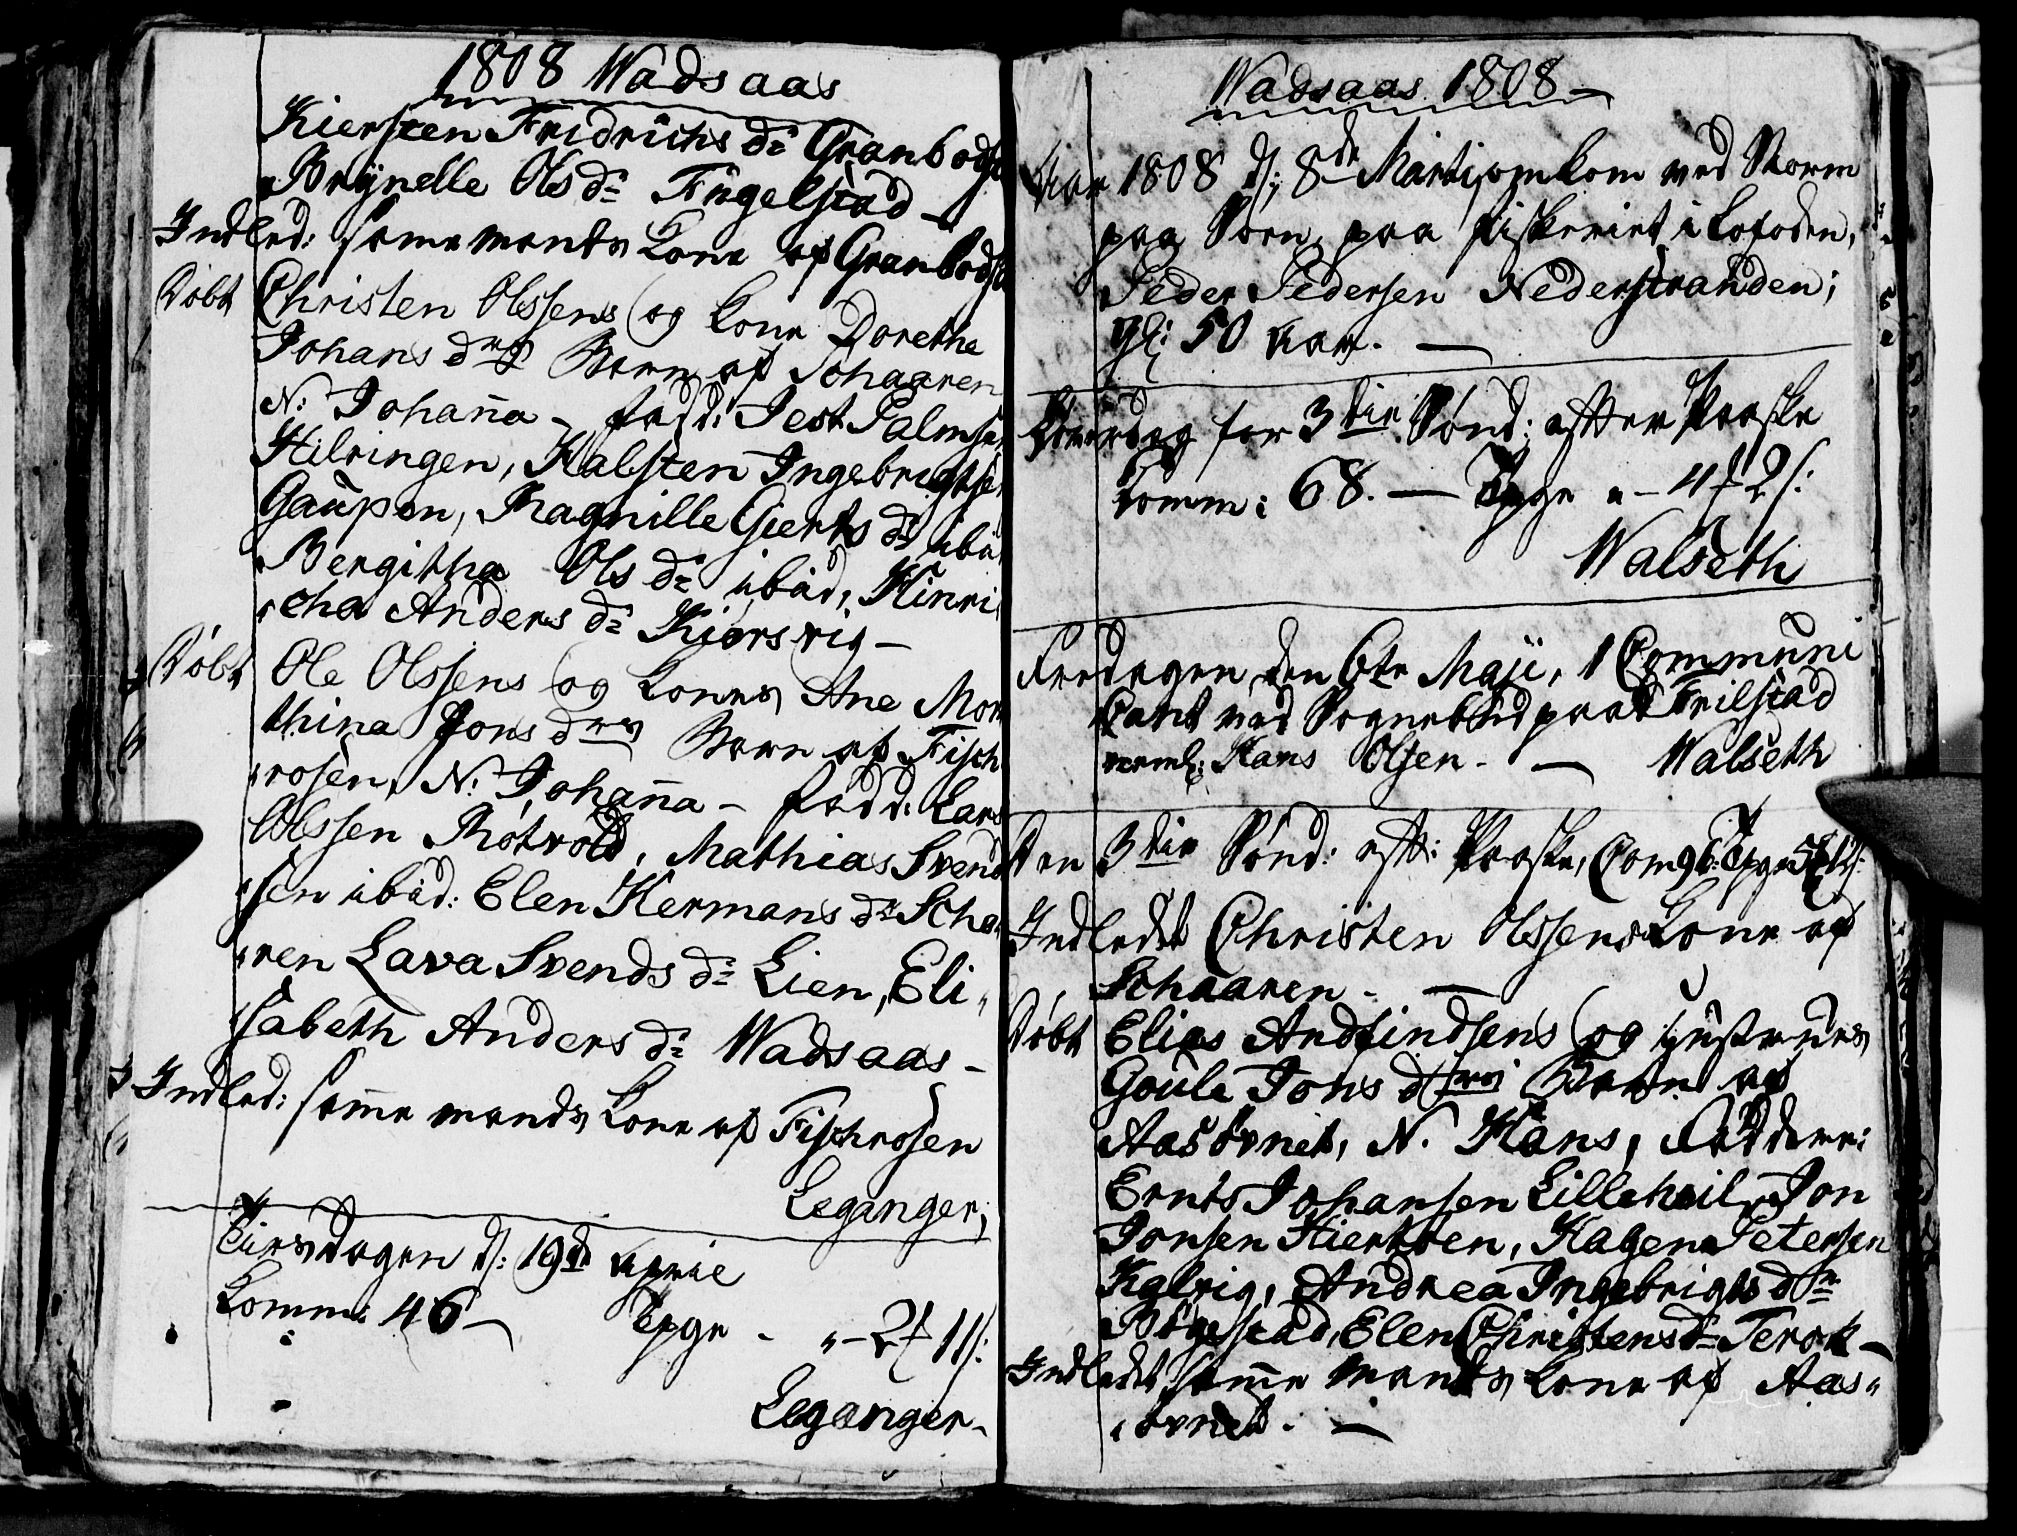 1808 Wadsaas
Kiersten Fridrichs d: Granbods
Brÿnelle Ols d: Fùgelstad
Indled: samme mands Kone af Granbods
Døbt Christen Olssens og Kone Dorethe
Johans d Barn af Schaaren
N: Johanna – fadd: Jest Palmse
Hilringen, Halsten Ingebrigtse
Gaùpen, Ragnille Gierts d: ibi
Bergitha Ols d: ibid, Hinri
cha Anders d: Kiørsvig –
Døbt Ole Olssens og Kones Ane Mor
thina Jons d Barn af Fisch
rosen, N: Johanna – fadd: Lars
Olssen Røtvold, Mathias Svend
sen ibid: Elen Hermans d: Scha
ren Lava Svends d: Lien, Eli
sabeth Anders d: Wadsaas –
Indled: samme mands Kone af Fischrosen
Leganger;
Tirsdagen d: 19de April
Komm: 46 – Tpge – 2 11 s:
Leganger.
Wadsaas 1808 –
Aar 1808 d: 8de Marti omkom ved Storm
paa Søen, paa fiskeriet i Lofoden,
Peder Pedersen Nederstranden;
gl: 50 Aar. —
Løverdag før 3die Sønd: efter Paaske
Comm: 68. — Tpge – 4 2 s:
Walseth
Fredagen den 6te Maji, 1 Communi
Cant ved Sognebud paa Frilstad
neml: Hans Olsen. — Walseth
Den 3die Sønd: eft: Paaske, Com 96: Tpge
Indledt Christen Olssens Kone af
Schaaren. —
Døbt Elias Andfindsens og hustrues
Goùle Jons d Barn af
Aasøvnet, N. Hans, Faddere:
Ernts Johansen Lilleheil, Jon
Jonsen Hiertøen, Hagen Petersen
Kalvig, Andrea Ingebrigts d:
Bøgestad, Elen Christens d: Terok –
Indledt samme mands Kone af Aas
øvnet. —